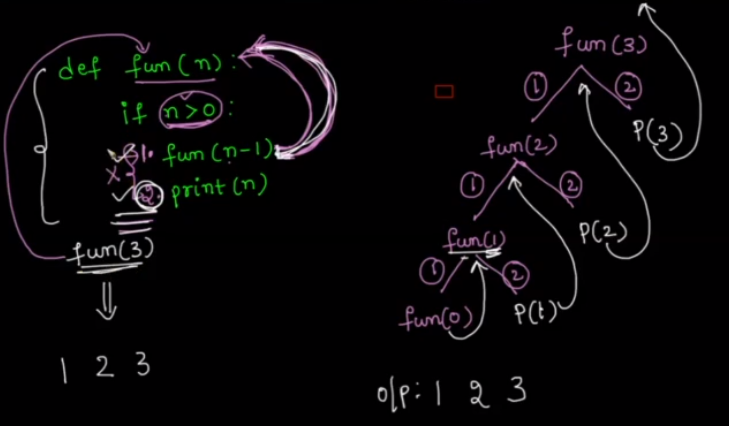 def fun(n):
if n>0:
1. fun(n-1)
2. print(n)
fun(3)
⇓
1 2 3
fun(3)
① ②
P(3)
fun(2)
① ②
P(2)
fun(1)
① ②
fun(0)
P(1)
o/p: 1 2 3